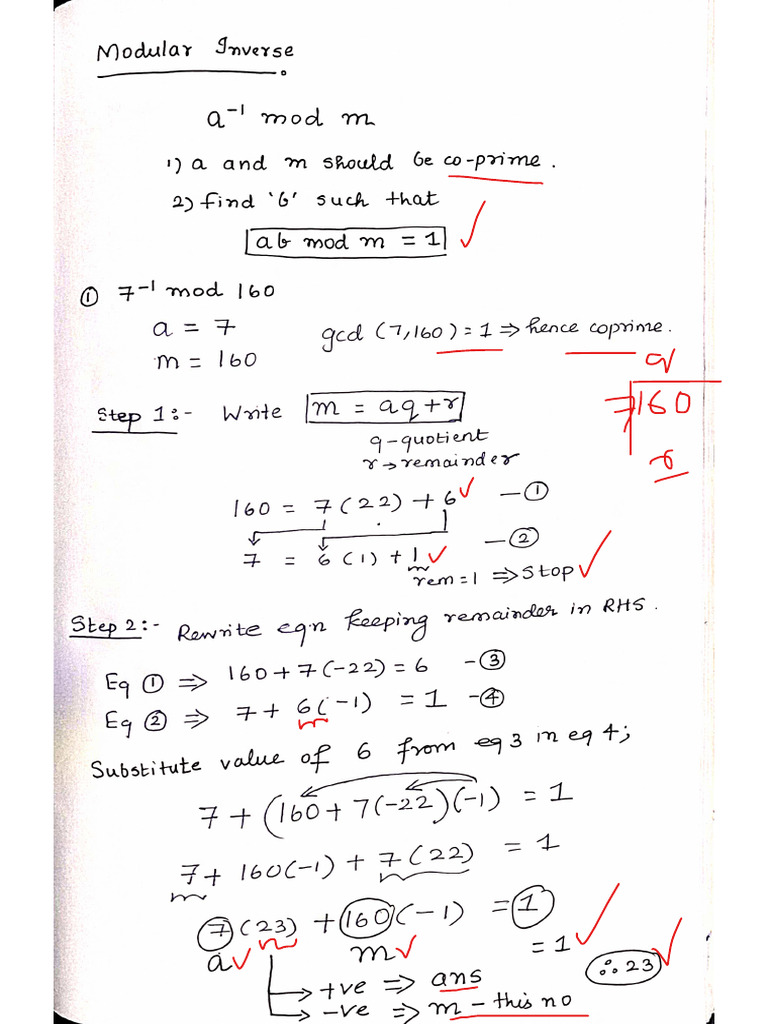 Modular Inverse
a⁻¹ mod m
1) a and m should be co-prime.
2) find 'b' such that
ab mod m = 1 ✓
① 7⁻¹ mod 160
a = 7
gcd (7,160) = 1 ⇒ hence coprime.
m = 160
q
7 160
r
Step 1:- Write m = aq + r
q - quotient
r → remainder
160 = 7(22) + 6 ✓ — ①
7 = 6(1) + 1 ✓ — ②
rem = 1 ⇒ stop ✓
Step 2:- Rewrite eqn keeping remainder in RHS.
Eq ① ⇒ 160 + 7(-22) = 6 — ③
Eq ② ⇒ 7 + 6(-1) = 1 — ④
Substitute value of 6 from eq 3 in eq 4;
7 + (160 + 7(-22)(-1) = 1
7 + 160(-1) + 7(22) = 1
7(23) + 160(-1) = 1
a ✓ m ✓ = 1 ✓ ∴ 23 ✓
+ve ⇒ ans
-ve ⇒ m - this no